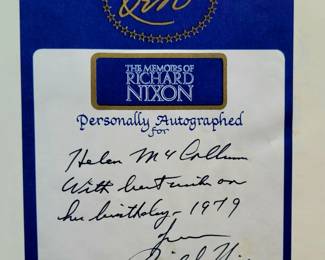 THE MEMOIRS OF
RICHARD
NIXON
Personally Autographed
for
Helen McCollum
With best wishes on
her birthday - 1979
from